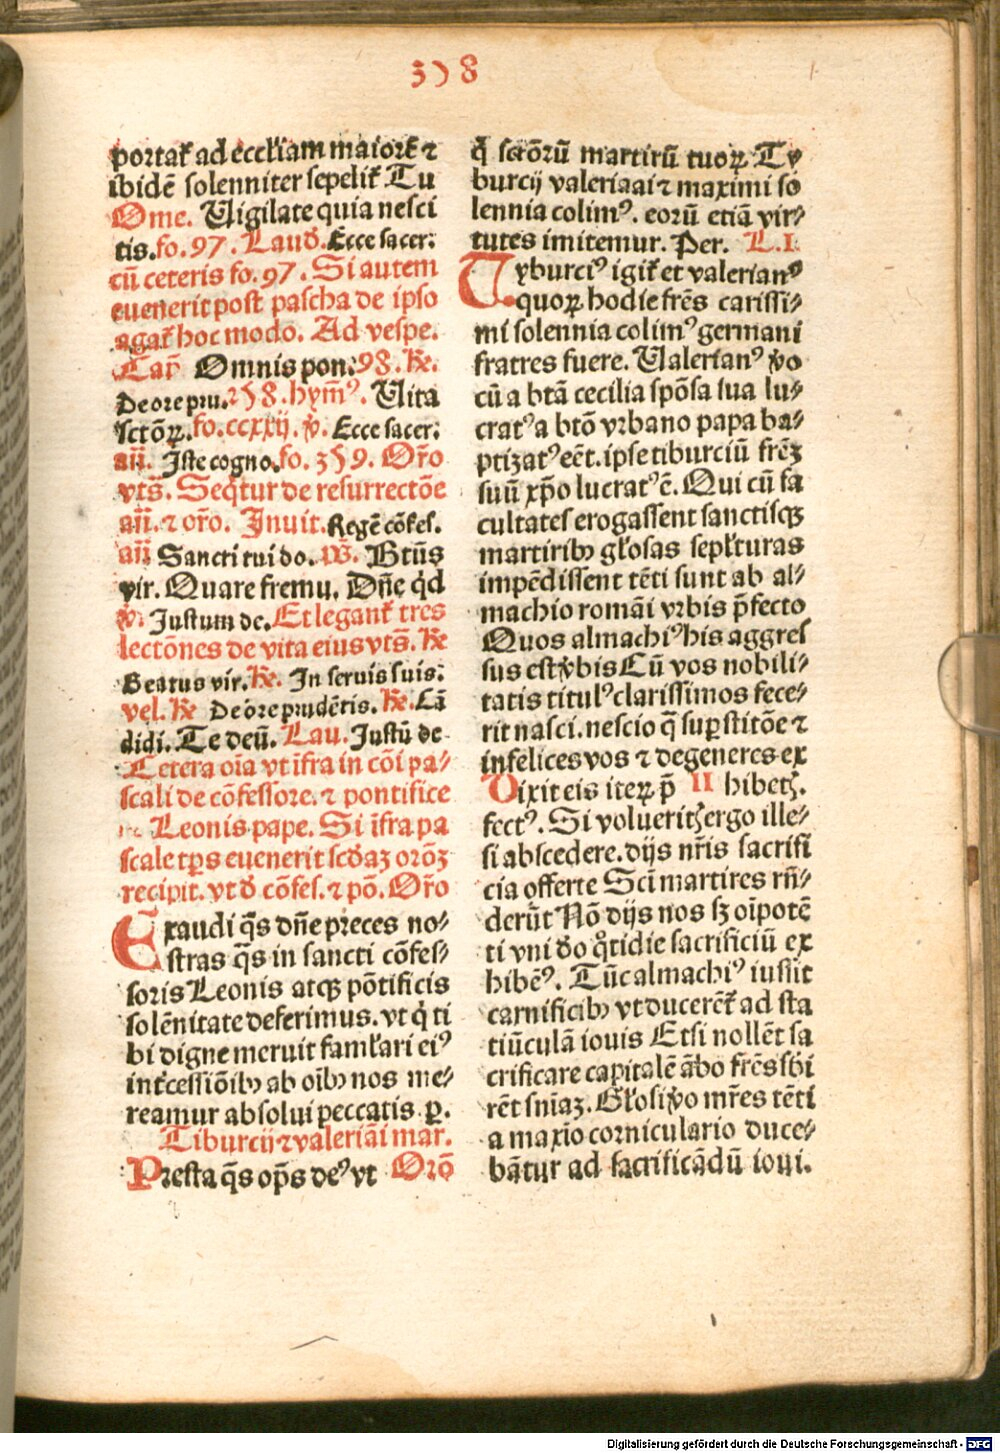 378
portat᷑ ad eccl'iam maiorē ⁊
ibidē solenniter sepelit᷑ Tu
Ome. Vigilate quia nesci
tis. fo. 97. Laud̄. Ecce sacer:
cū ceteris fo. 97. Si autem
euenerit post pascha de ipso
agat᷑ hoc modo. Ad vespe.
Cap̄ Omnis pon. 98. ℞.
De ore pru. 258. hym̄ꝰ. Vita
sctōꝝ. fo. ccxxij. ℣. Ecce sacer:
aīi. Iste cogno. fo. 359. Orō
vts̄. Seq̄tur de resurrectōe
aīi. ⁊ orō. Inuit. Regē cōfes.
aīi Sancti tui do. p̄s. Btūs
vir. Quare fremu. Dn̄e q̇d
℣. Justum dc. Et legant᷑ tres
lectōnes de vita eius vts̄. ℞
Beatus vir. ℞. In seruis suis:
vel. ℞ De ore prudētis. ℞. Cā
didi. Te deū. Lau. Justū de-
Cetera oīa vt īfra in cōi pa⸗
scali de cōfessore. ⁊ pontifice
Leonis pape. Si īfra pa
scale tꝑs euenerit scd̄aꝫ orōꝫ
recipit. vt d̄ cōfes. ⁊ pō. Orō
Exaudi q̄s dn̄e preces no⸗
stras q̄s in sancti cōfes⸗
soris Leonis atqꝫ pōtificis
solēnitate deferimus. vt q̇ ti
bi digne meruit faml'ari eiꝰ
int᷑cessiōibꝰ ab oībꝰ nos me⸗
reamur absolui peccatis. ꝑ.
Tiburcij ⁊ valeriāi mar.
Presta q̄s op̄s deꝰ vt Orō
q̇ sctōrū martirū tuoꝝ Ty
burcij valeriaai ⁊ maximi so
lennia colimꝰ. eorū etiā vir⸗
tutes imitemur. Per. L. I.
Tyburciꝰ igit᷑ et valerianꝰ
quoꝝ hodie frēs carissi⸗
mi solennia colimꝰ germani
fratres fuere. Valerianꝰ v̊o
cū a btā cecilia spōsa sua lu⸗
cratꝰ a btō vrbano papa ba⸗
ptizatꝰ eēt. ipse tiburciū frēꝫ
suū xp̄o lucratꝰ ē. Qui cū fa
cultates erogassent sanctisqꝫ
martiribꝰ gl'osas sepl'turas
impēdissent tēti sunt ab al⸗
machio romāi vrbis p̄fecto
Quos almachiꝰ his aggres
sus est v̊bis Cū vos nobili⸗
tatis titulꝰ clarissimos fece⸗
rit nasci. nescio q̄ suꝑstitōe ⁊
infelices vos ⁊ degeneres ex
Dixit eis iteꝝ p̄ II hibetꝫ.
fectꝰ. Si volueritꝫ ergo ille⸗
si abscedere. dijs nr̄is sacrifi
cia offerte Sci martires rn̄⸗
derūt Nō dijs nos sꝫ oīpotē
ti vni do q̊tidie sacrificiū ex
hibēꝰ. Tūc almachiꝰ iussit
carnificibꝰ vt ducerēt᷑ ad sta
tiūculā iouis Et si nollēt sa
crificare capitalē ābo frēs sbi
rēt sniaꝫ. Gl'osi v̊o mr̄es tēti
a maxio corniculario duce⸗
bātur ad sacrificādū ioui.
Digitalisierung gefördert durch die Deutsche Forschungsgemeinschaft - DFG